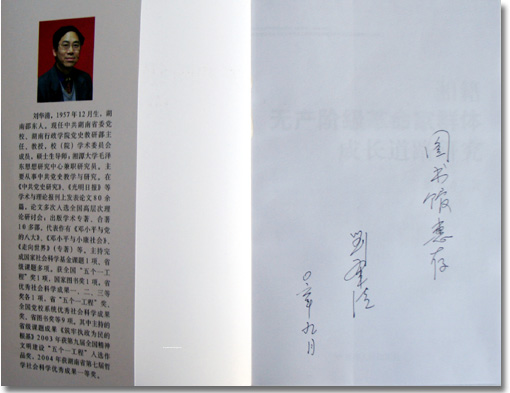 刘华清，1957年12月生，湖
南邵东人。现任中共湖南省委党
校、湖南行政学院党史教研部主
任、教授，校（院）学术委员会
成员，硕士生导师；湘潭大学毛泽
东思想研究中心兼职研究员。主
要从事中共党史教学与研究。在
《中共党史研究》、《光明日报》等
学术与理论报刊上发表论文80余
篇，论文多次入选全国高层次理
论研讨会；出版学术专著、合著
16多部，代表作有《邓小平与党
的八大》、《邓小平与小康社会》、
《走向世界》（专著）等。主持完
成国家社会科学基金课题1项、省
级课题多项。获全国“五个一工
程”奖1项、国家图书奖1项，省
优秀社会科学成果一、二、三等
奖各1项，省“五个一工程”奖、
全国党校系统优秀社会科学成果
奖、省图书奖等9项。其中主持的
省级课题成果《筑牢执政为民的
根基》2003年获第九届全国精神
文明建设“五个一工程”入选作
品奖、2004年获湖南省第七届哲
学社会科学优秀成果一等奖。
图书馆惠存
劉華清
九月